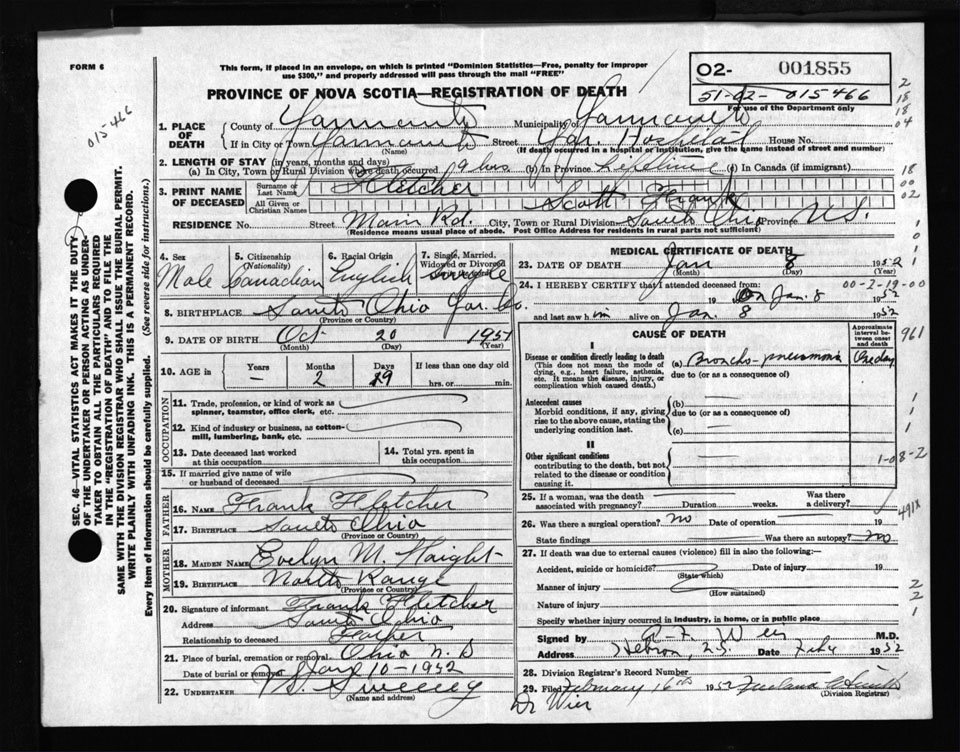 FORM 6
This form, if placed in an envelope, on which is printed "Dominion Statistics—Free, penalty for improper
use $300," and properly addressed will pass through the mail "FREE"
PROVINCE OF NOVA SCOTIA—REGISTRATION OF DEATH
02- 001855
51-02-015466
For use of the Department only
015466
SEC. 46—VITAL STATISTICS ACT MAKES IT THE DUTY
OF THE UNDERTAKER OR PERSON ACTING AS UNDER-
TAKER TO OBTAIN ALL THE PARTICULARS REQUIRED
IN THE "REGISTRATION OF DEATH" AND TO FILE THE
SAME WITH THE DIVISION REGISTRAR WHO SHALL ISSUE THE BURIAL PERMIT.
WRITE PLAINLY WITH UNFADING INK. THIS IS A PERMANENT RECORD.
Every item of information should be carefully supplied. (See reverse side for instructions.)
1. PLACE OF DEATH
County of Yarmouth Municipality of Yarmouth
If in City or Town Yarmouth Street Yar. Hospital House No.
(Name) (If death occurred in a hospital or institution, give the name instead of street and number)
2. LENGTH OF STAY (in years, months and days)
(a) In City, Town or Rural Division where death occurred 9 hrs (b) In Province Lifetime (c) In Canada (if immigrant)
3. PRINT NAME OF DECEASED
Surname or Last Name Fletcher
All Given or Christian Names Scott Frank
RESIDENCE No. Street Main Rd. City, Town or Rural Division South Ohio Province N.S.
(Residence means usual place of abode. Post Office Address for residents in rural parts not sufficient)
4. Sex Male
5. Citizenship (Nationality) Canadian
6. Racial Origin English
7. Single, Married, Widowed or Divorced Single
8. BIRTHPLACE South Ohio Yar. Co.
(Province or Country)
9. DATE OF BIRTH Oct 20 1951
(Month) (Day) (Year)
10. AGE in Years — Months 2 Days 19 If less than one day old hrs. or min.
OCCUPATION
11. Trade, profession, or kind of work as
spinner, teamster, office clerk, etc.
12. Kind of industry or business, as cotton-
mill, lumbering, bank, etc.
13. Date deceased last worked
at this occupation
14. Total yrs. spent in
this occupation
15. If married give name of wife
or husband of deceased
FATHER
16. Name Frank Fletcher
17. Birthplace South Ohio
(Province or Country)
MOTHER
18. MAIDEN NAME Evelyn M. Haight
19. BIRTHPLACE North Range
(Province or Country)
20. Signature of informant Frank Fletcher
Address South Ohio
Relationship to deceased Father
21. Place of burial, cremation or removal Ohio N.S
Date of burial or removal Jan 10-1952
22. UNDERTAKER Sweeney
(Name and address)
MEDICAL CERTIFICATE OF DEATH
23. DATE OF DEATH Jan 8 1952
(Month) (Day) (Year)
24. I HEREBY CERTIFY that I attended deceased from:
19 On Jan. 8 1952
and last saw him alive on Jan. 8 1952
CAUSE OF DEATH
Approximate interval between onset and death
I
Disease or condition directly leading to death
(This does not mean the mode of
dying, e.g., heart failure, asthenia,
etc. It means the disease, injury, or
complication which caused death.)
(a) Broncho-pneumonia One day
due to (or as a consequence of)
Antecedent causes
Morbid conditions, if any, giving
rise to the above cause, stating the
underlying condition last.
(b) —
due to (or as a consequence of)
(c) —
II
Other significant conditions
contributing to the death, but not
related to the disease or condition
causing it.
25. If a woman, was the death
associated with pregnancy? Duration weeks. Was there a delivery?
26. Was there surgical operation? no Date of operation 19
State findings Was there an autopsy? no
27. If death was due to external causes (violence) fill in also the following:—
Accident, suicide or homicide? Date of injury 19
(State which)
Manner of injury
(How sustained)
Nature of injury
Specify whether injury occurred in industry, in home, or in public place
Signed by Weir M.D.
Address Hebron, N.S. Date Feb 4 1952
28. Division Registrar's Record Number
29. Filed February 16th 1952
(Division Registrar)
Dr Wier
2
18
18
04
18
00
02
1
0
1
1
00-2-19-00
961
1
1
1
1-08-2
491X
2
2
1